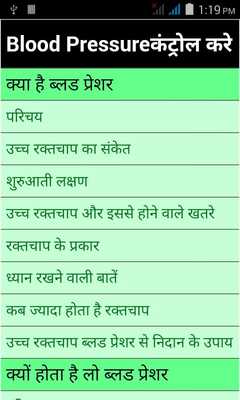 1:19 PM
Blood Pressureकंट्रोल करे
क्या है ब्लड प्रेशर
परिचय
उच्च रक्तचाप का संकेत
शुरुआती लक्षण
उच्च रक्तचाप और इससे होने वाले खतरे
रक्तचाप के प्रकार
ध्यान रखने वाली बातें
कब ज्यादा होता है रक्तचाप
उच्च रक्तचाप ब्लड प्रेशर से निदान के उपाय
क्यों होता है लो ब्लड प्रेशर